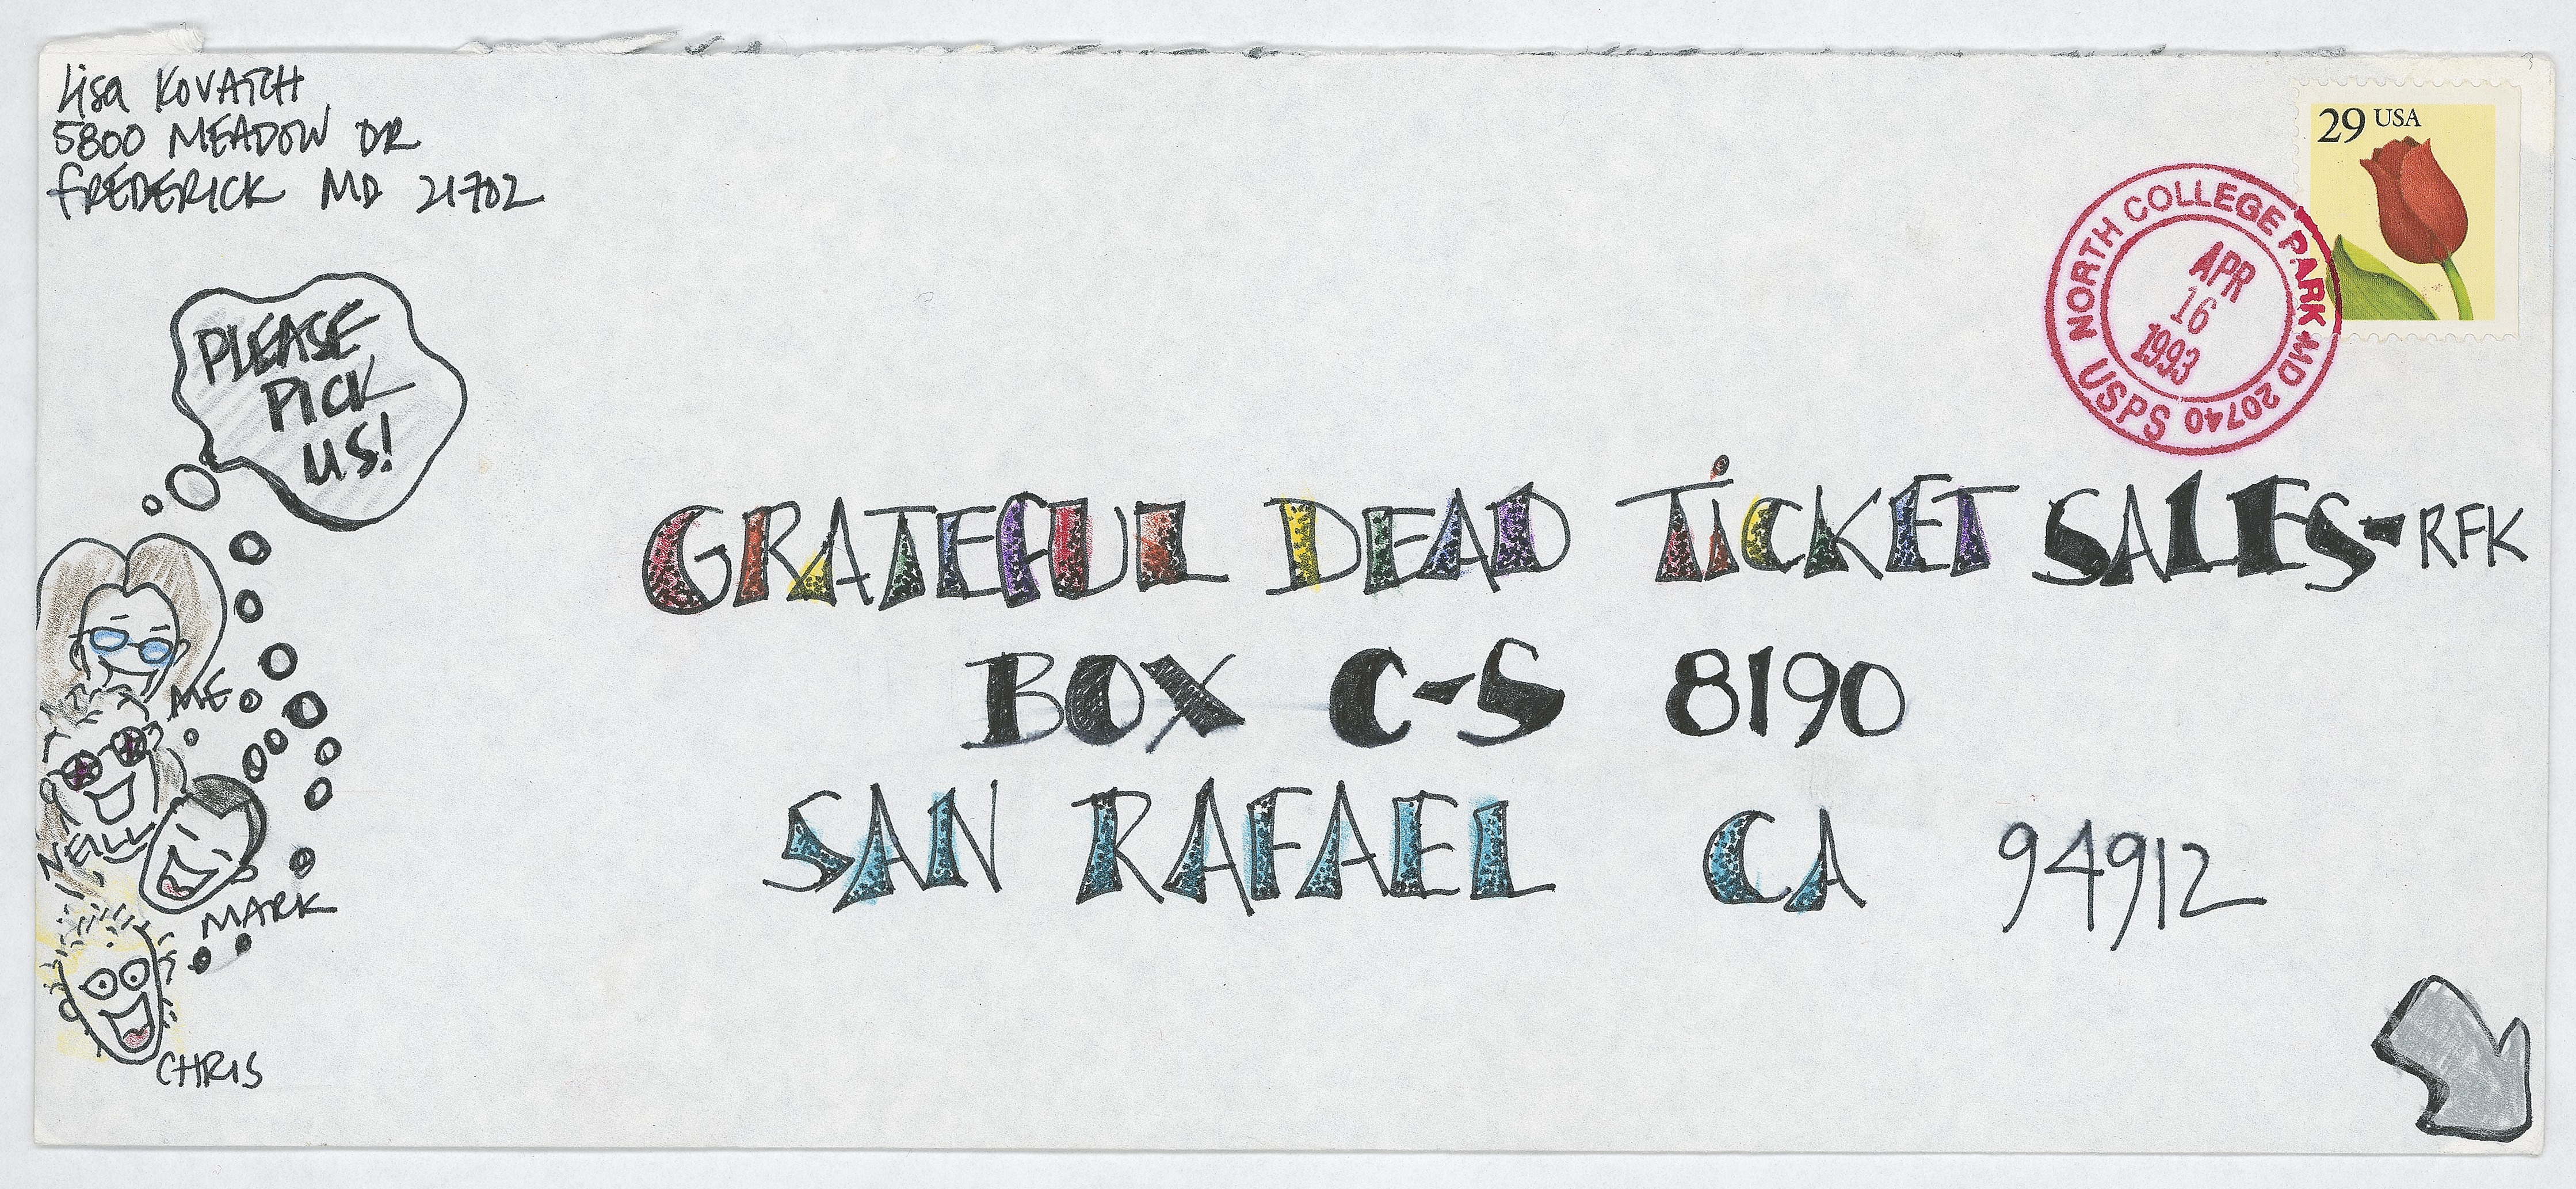 Lisa KOVATCH
5800 MEADOW DR
FREDERICK MD 21702
29 USA
NORTH COLLEGE PARK MD 20740
USPS
APR
16
1993
PLEASE
PICK
US!
GRATEFUL DEAD TiCKET SALES-RFK
BOX C-S 8190
SAN RAFAEL CA 94912
ME
NEILL
MARK
CHRIS